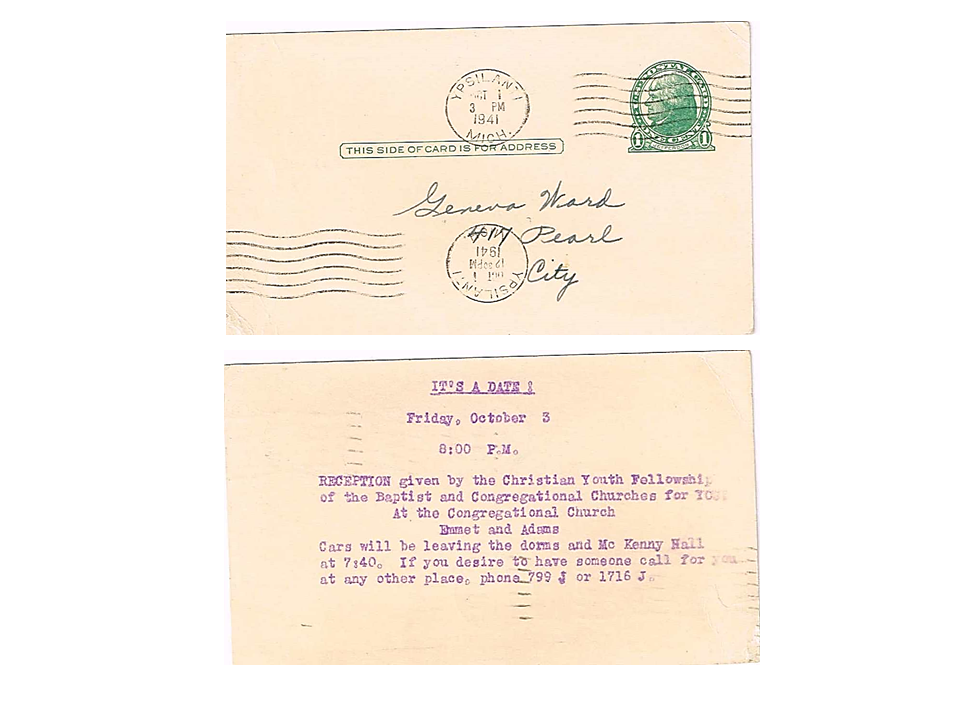 YPSILANTI
OCT 1
3 PM
1941
MICH.
THIS SIDE OF CARD IS FOR ADDRESS
1 JEFFERSON 1
Geneva Ward
417 Pearl
City
YPSILANTI
OCT 1
12 30 PM
1941
MICH.
IT'S A DATE !
Friday, October 3
8:00 P.M.
RECEPTION given by the Christian Youth Fellowship
of the Baptist and Congregational Churches for
At the Congregational Church
Emmet and Adams
Cars will be leaving the dorms and Mc Kenny Hall
at 7:40. If you desire to have someone call for you
at any other place, phone 799 J or 1716 J.